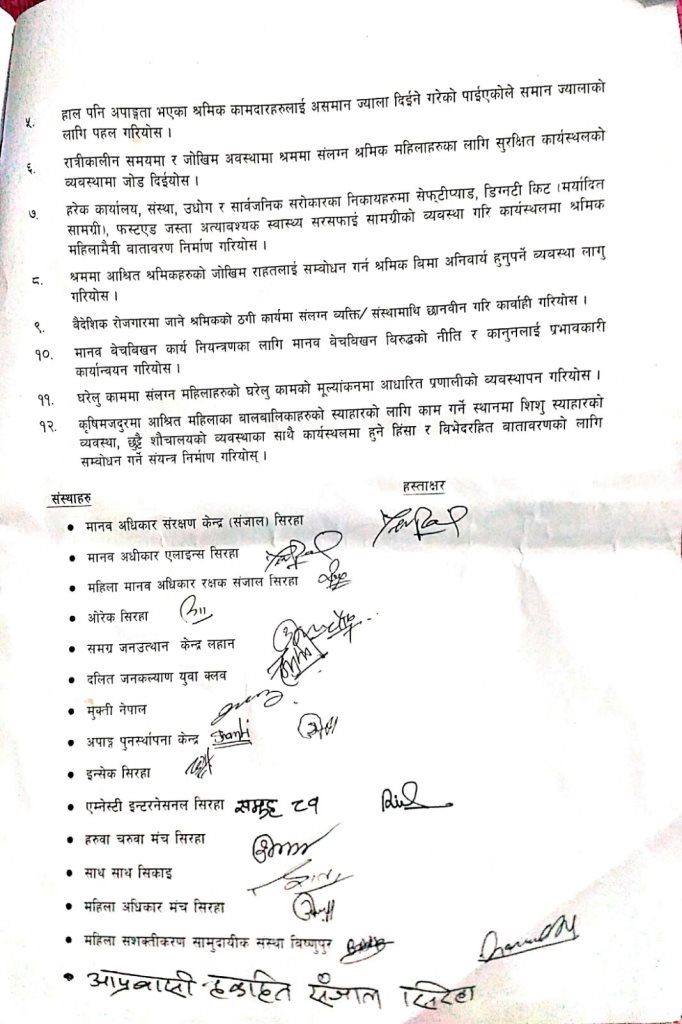 ५. हाल पनि अपाङ्गता भएका श्रमिक कामदारहरुलाई असमान ज्याला दिईने गरेको पाईएकोले समान ज्यालाको
लागि पहल गरियोस ।
६. रात्रीकालीन समयमा र जोखिम अवस्थामा श्रममा संलग्न श्रमिक महिलाहरुका लागि सुरक्षित कार्यस्थलको
व्यवस्थामा जोड दिईयोस ।
७. हरेक कार्यालय, संस्था, उधोग र सार्वजनिक सरोकारका निकायहरुमा सेफ्टीप्याड, डिग्नटी किट (मर्यादित
सामग्री), फस्टएड जस्ता अत्यावश्यक स्वास्थ्य सरसफाई सामग्रीको व्यवस्था गरि कार्यस्थलमा श्रमिक
महिलामैत्री वातावरण निर्माण गरियोस ।
८. श्रममा आश्रित श्रमिकहरुको जोखिम राहतलाई सम्बोधन गर्न श्रमिक विमा अनिवार्य हुनुपर्ने व्यवस्था लागु
गरियोस ।
९. बैदेशिक रोजगारमा जाने श्रमिकको ठगी कार्यमा संलग्न व्यक्ति/ संस्थामाथि छानवीन गरि कार्वाही गरियोस ।
१०. मानव बेचबिखन कार्य नियन्त्रणका लागि मानव बेचबिखन विरुद्धको नीति र कानुनलाई प्रभावकारी
कार्यान्वयन गरियोस ।
११. घरेलु काममा संलग्न महिलाहरुको घरेलु कामको मूल्यांकनमा आधारित प्रणालीको व्यवस्थापन गरियोस ।
१२. कृषिमजदुरमा आश्रित महिलाका बालबालिकाहरुको स्याहारको लागि काम गर्ने स्थानमा शिशु स्याहारको
व्यवस्था, छुट्टै शौचालयको व्यवस्थाका साथै कार्यस्थलमा हुने हिंसा र विभेदरहित बातावरणको लागि
सम्बोधन गर्ने संयन्त्र निर्माण गरियोस् ।
संस्थाहरु हस्ताक्षर
• मानव अधिकार संरक्षण केन्द्र (संजाल) सिरहा
• मानव अधीकार एलाइन्स सिरहा
• महिला मानव अधिकार रक्षक संजाल सिरहा
• ओरेक सिरहा
• समग्र जनउत्थान केन्द्र लहान
• दलित जनकल्याण युवा क्लव
• मुक्ती नेपाल
• अपाङ्ग पुनर्स्थापना केन्द्र
• इन्सेक सिरहा
• एम्नेस्टी इन्टरनेसनल सिरहा समूह ८१
• हरुवा चरुवा मंच सिरहा
• साथ साथ सिकाइ
• महिला अधिकार मंच सिरहा
• महिला सशक्तीकरण सामुदायीक संस्था विष्णुपुर
• आप्रवासी हकहित संजाल सिरहा